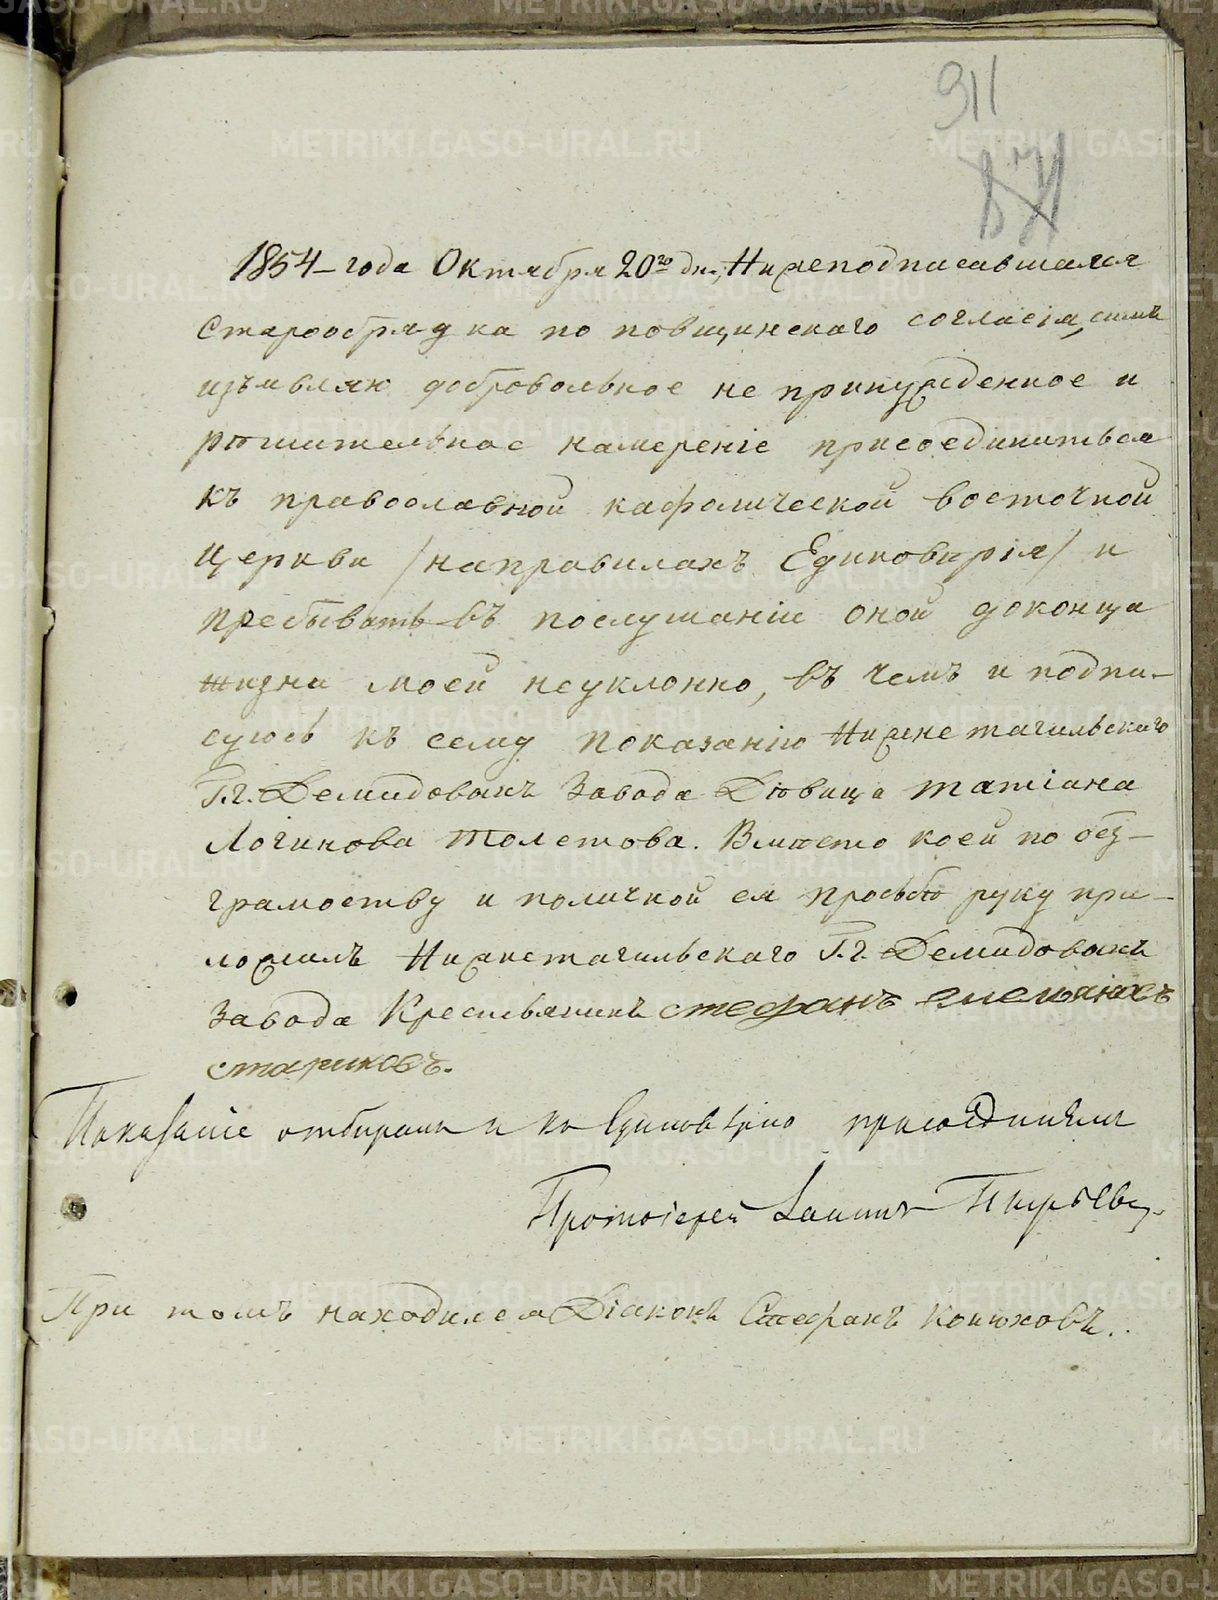 911
1854 – года Октября 20го дня, Нижеподписавшаяся
Старообрядка по повщинскаго согласія, симъ
изъявляю добровольное не принужденное и
рѣшительное намереніе присоединиться
къ православной кафолической восточной
Церкви /на правилахъ Единоверія/ и
пребывать въ послушаніи оной до конца
жизни моей неуклонно, въ чемъ и подпи-
суюсь къ сему показанію Нижнетагильскаго
Г.г. Демидовыхъ Завода Дѣвица Татіана
Логинова Толстова. Вмѣсто коей по без-
грамоству и поличной ея просьбѣ руку при-
ложилъ Нижнетагильскаго Г.г. Демидовыхъ
Завода Крестьянинъ стефанъ емельяновъ
стариковъ.
Показаніе отбиралъ и къ Единовѣрію присоединялъ
Протоіерей Іоаннъ Пырьевъ.
При томъ находился Діаконъ Стефанъ Конюховъ..
METRIKI.GASO-URAL.RU